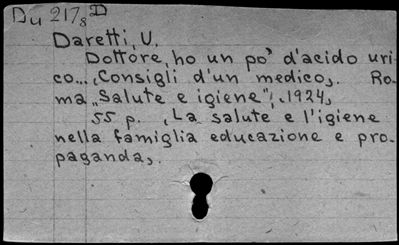 Du 217₈ D
Daretti, U.
Dottore, ho un po' d'acido uri-
co... ,Consigli d'un medico,. Ro-
ma „Salute e igiene", .1924,
55 p. ,La salute e l'igiene
nella famiglia educazione e pro-
paganda,.